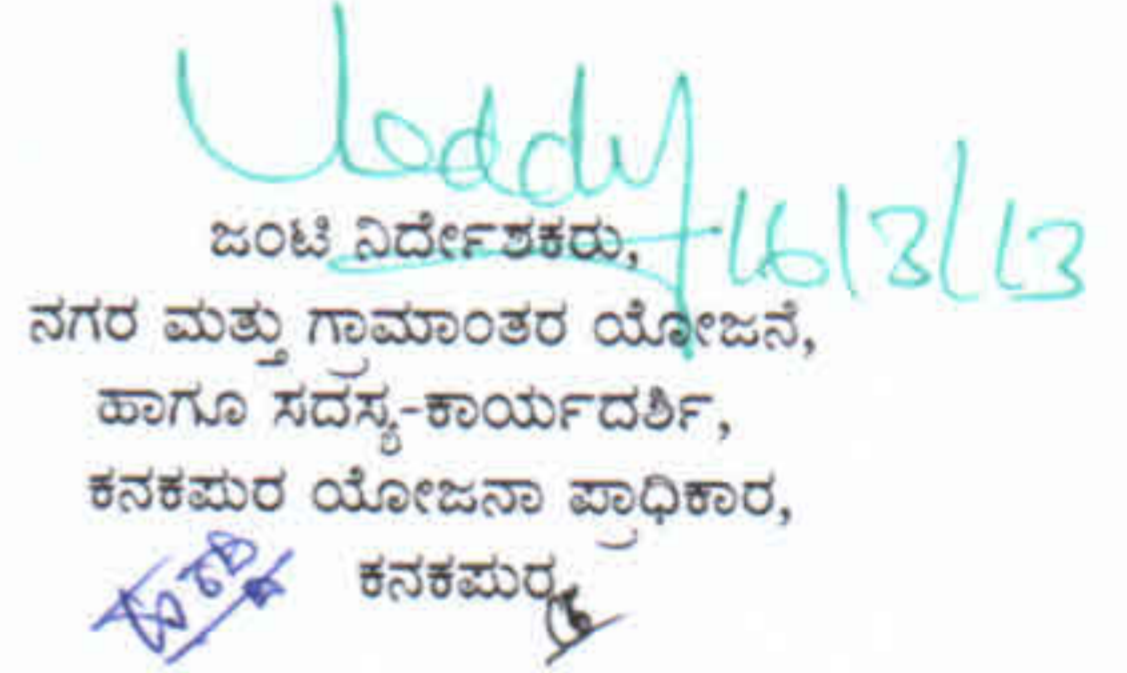 16/3/13
ಜಂಟಿ ನಿರ್ದೇಶಕರು,
ನಗರ ಮತ್ತು ಗ್ರಾಮಾಂತರ ಯೋಜನೆ,
ಹಾಗೂ ಸದಸ್ಯ-ಕಾರ್ಯದರ್ಶಿ,
ಕನಕಪುರ ಯೋಜನಾ ಪ್ರಾಧಿಕಾರ,
ಕನಕಪುರ